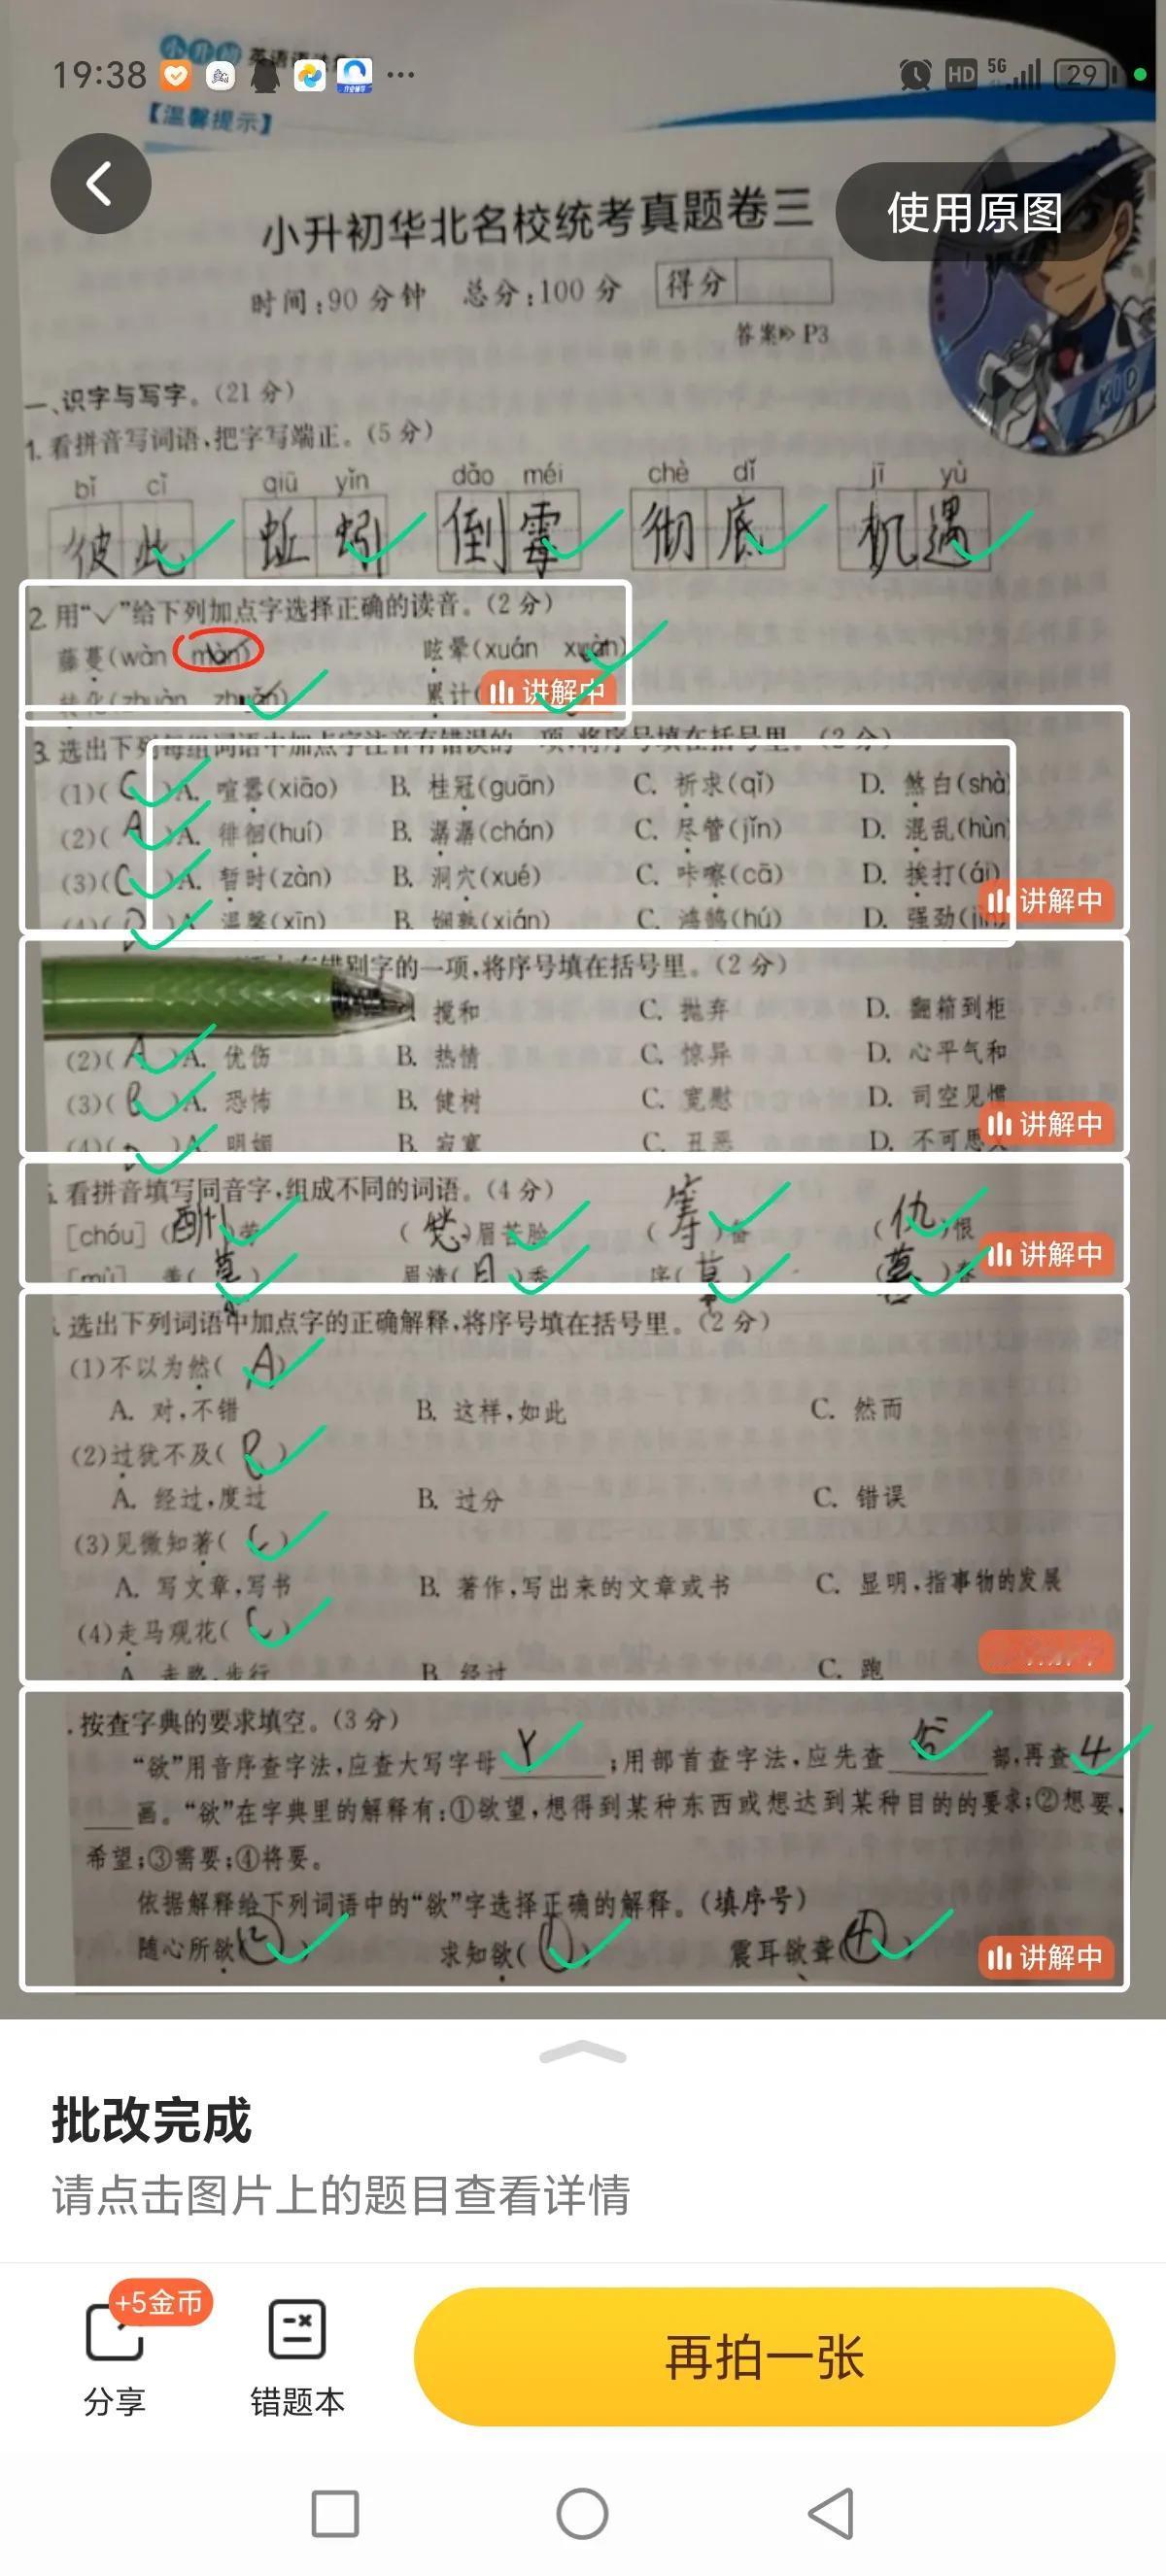 19:38
HD 5G 29
【温馨提示】
使用原图
小升初华北名校统考真题卷三
时间:90分钟 总分:100分 得分
答案 P3
KID
一、识字与写字。(21分)
1.看拼音写词语,把字写端正。(5分)
bǐ cǐ qiū yǐn dǎo méi chè dǐ jī yù
彼此 蚯蚓 倒霉 彻底 机遇
2.用“√”给下列加点字选择正确的读音。(2分)
藤蔓(wàn màn) 眩晕(xuán xuàn)
转化(zhuàn zhuǎn) 累计( 讲解中
3.选出下列每组词语中加点字注音有错误的一项,将序号填在括号里。(2分)
(1)( C )A. 喧嚣(xiāo) B. 桂冠(guān) C. 祈求(qǐ) D. 煞白(shà)
(2)( A )A. 徘徊(huí) B. 潺潺(chán) C. 尽管(jǐn) D. 混乱(hùn)
(3)( C )A. 暂时(zàn) B. 洞穴(xué) C. 咔嚓(cā) D. 挨打(ái)
讲解中
(4)( D )A. 温馨(xīn) B. 娴熟(xián) C. 鸿鹄(hú) D. 强劲(jìn)
错别字的一项,将序号填在括号里。(2分)
搅和 C. 抛弃 D. 翻箱到柜
(2)( A )A. 优伤 B. 热情 C. 惊异 D. 心平气和
(3)( B )A. 恐怖 B. 健树 C. 宽慰 D. 司空见惯
讲解中
(4)( D )A. 明媚 B. 寂寞 C. 丑恶 D. 不可思
看拼音填写同音字,组成不同的词语。(4分)
[chóu] (酬)劳 (愁)眉苦脸 (筹)备 (仇)恨
讲解中
[mù] 羡(慕) 眉清(目)秀 序(幕) (暮)春
选出下列词语中加点字的正确解释,将序号填在括号里。(2分)
(1)不以为然( A )
A. 对,不错 B. 这样,如此 C. 然而
(2)过犹不及( B )
A. 经过,度过 B. 过分 C. 错误
(3)见微知著( C )
A. 写文章,写书 B. 著作,写出来的文章或书 C. 显明,指事物的发展
(4)走马观花( C )
A. 走路,步行 B. 经过 C. 跑
.按查字典的要求填空。(3分)
“欲”用音序查字法,应查大写字母 Y ;用部首查字法,应先查 部,再查 4
画。“欲”在字典里的解释有:①欲望,想得到某种东西或想达到某种目的的要求;②想要,
希望;③需要;④将要。
依据解释给下列词语中的“欲”字选择正确的解释。(填序号)
随心所欲(②) 求知欲(①) 震耳欲聋(④)
讲解中
批改完成
请点击图片上的题目查看详情
+5金币
分享
错题本
再拍一张